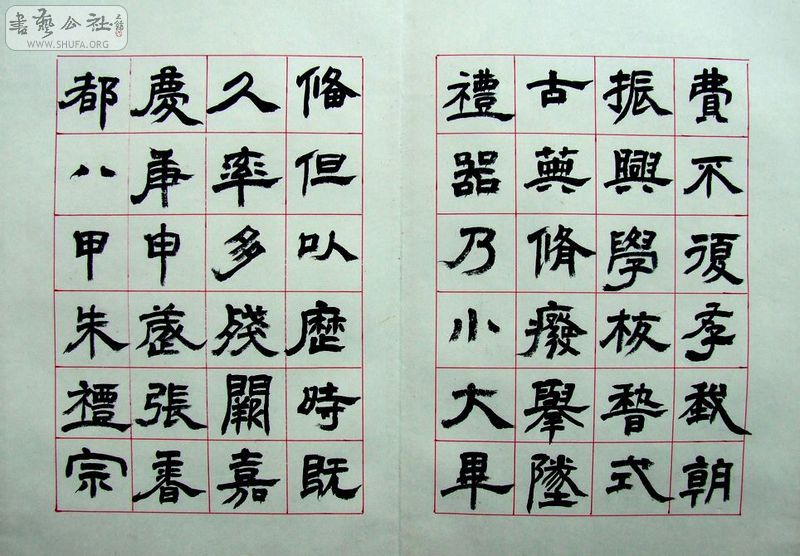 費不復存我朝
振興學校式
古典脩廢舉墜
禮器乃小大畢
備但以歷時既
久率多殘闕嘉
慶庚申歲張香
都八甲朱禮宗
書藝公社
WWW.SHUFA.ORG